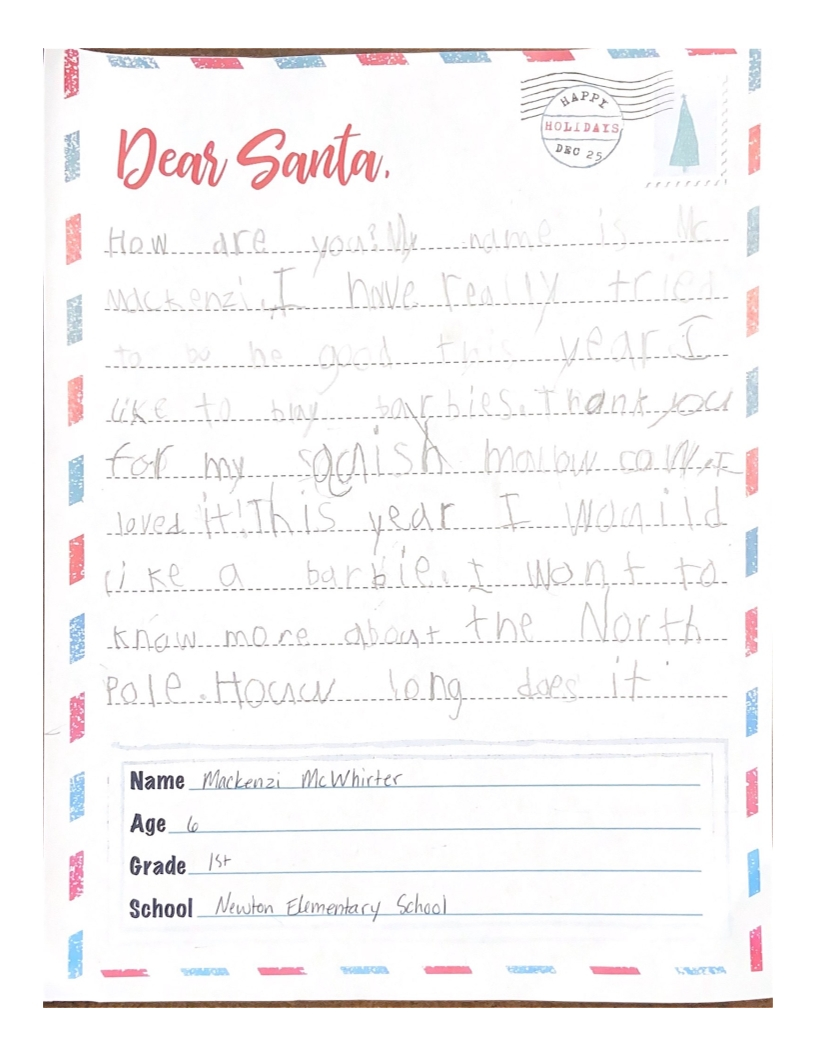 HAPPY
HOLIDAYS
DEC 25
Dear Santa,
How are you? My name is Mc
Mackenzi. I have really tried
to bo be good this year. I
like to blay barbies. Thank you
for my sqaish mallow cow. I
loved it! This year I Wouild
like a barbie. I wont to
know more about the North
Pole. Houw long does it
Name Mackenzi McWhirter
Age 6
Grade 1st
School Newton Elementary School